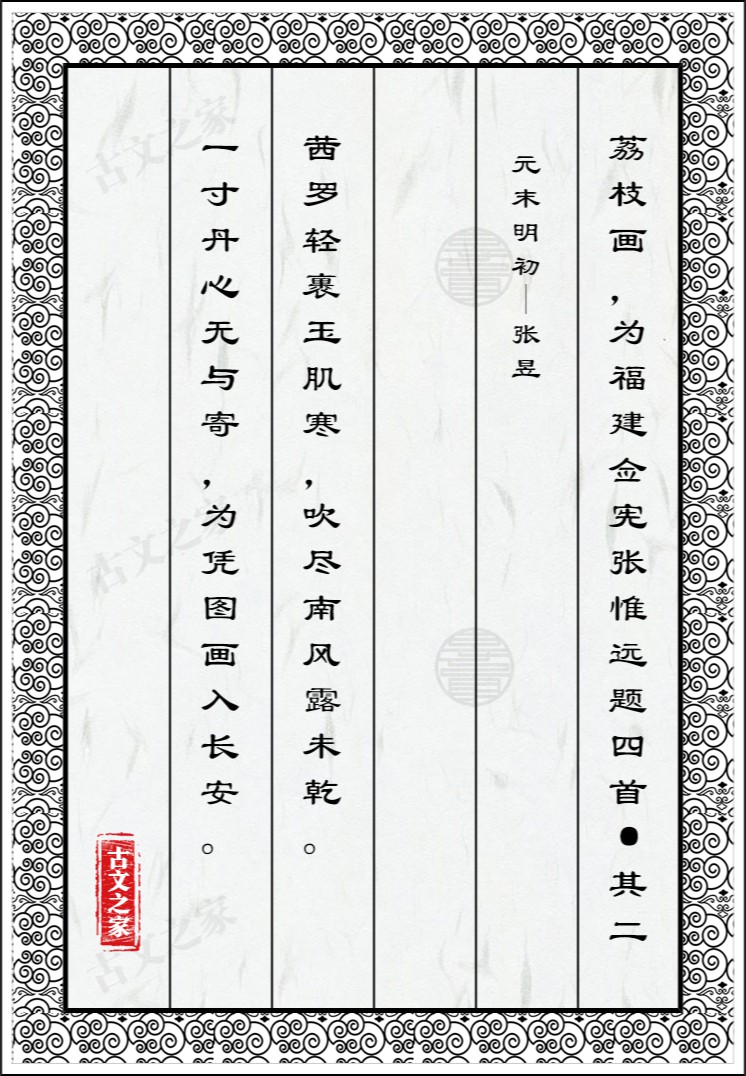 荔枝画，为福建佥宪张惟远题四首●其二
元末明初｜张昱
茜罗轻裹玉肌寒，吹尽南风露未乾。
一寸丹心无与寄，为凭图画入长安。
古文之家
古文之家
古文之家
古文之家